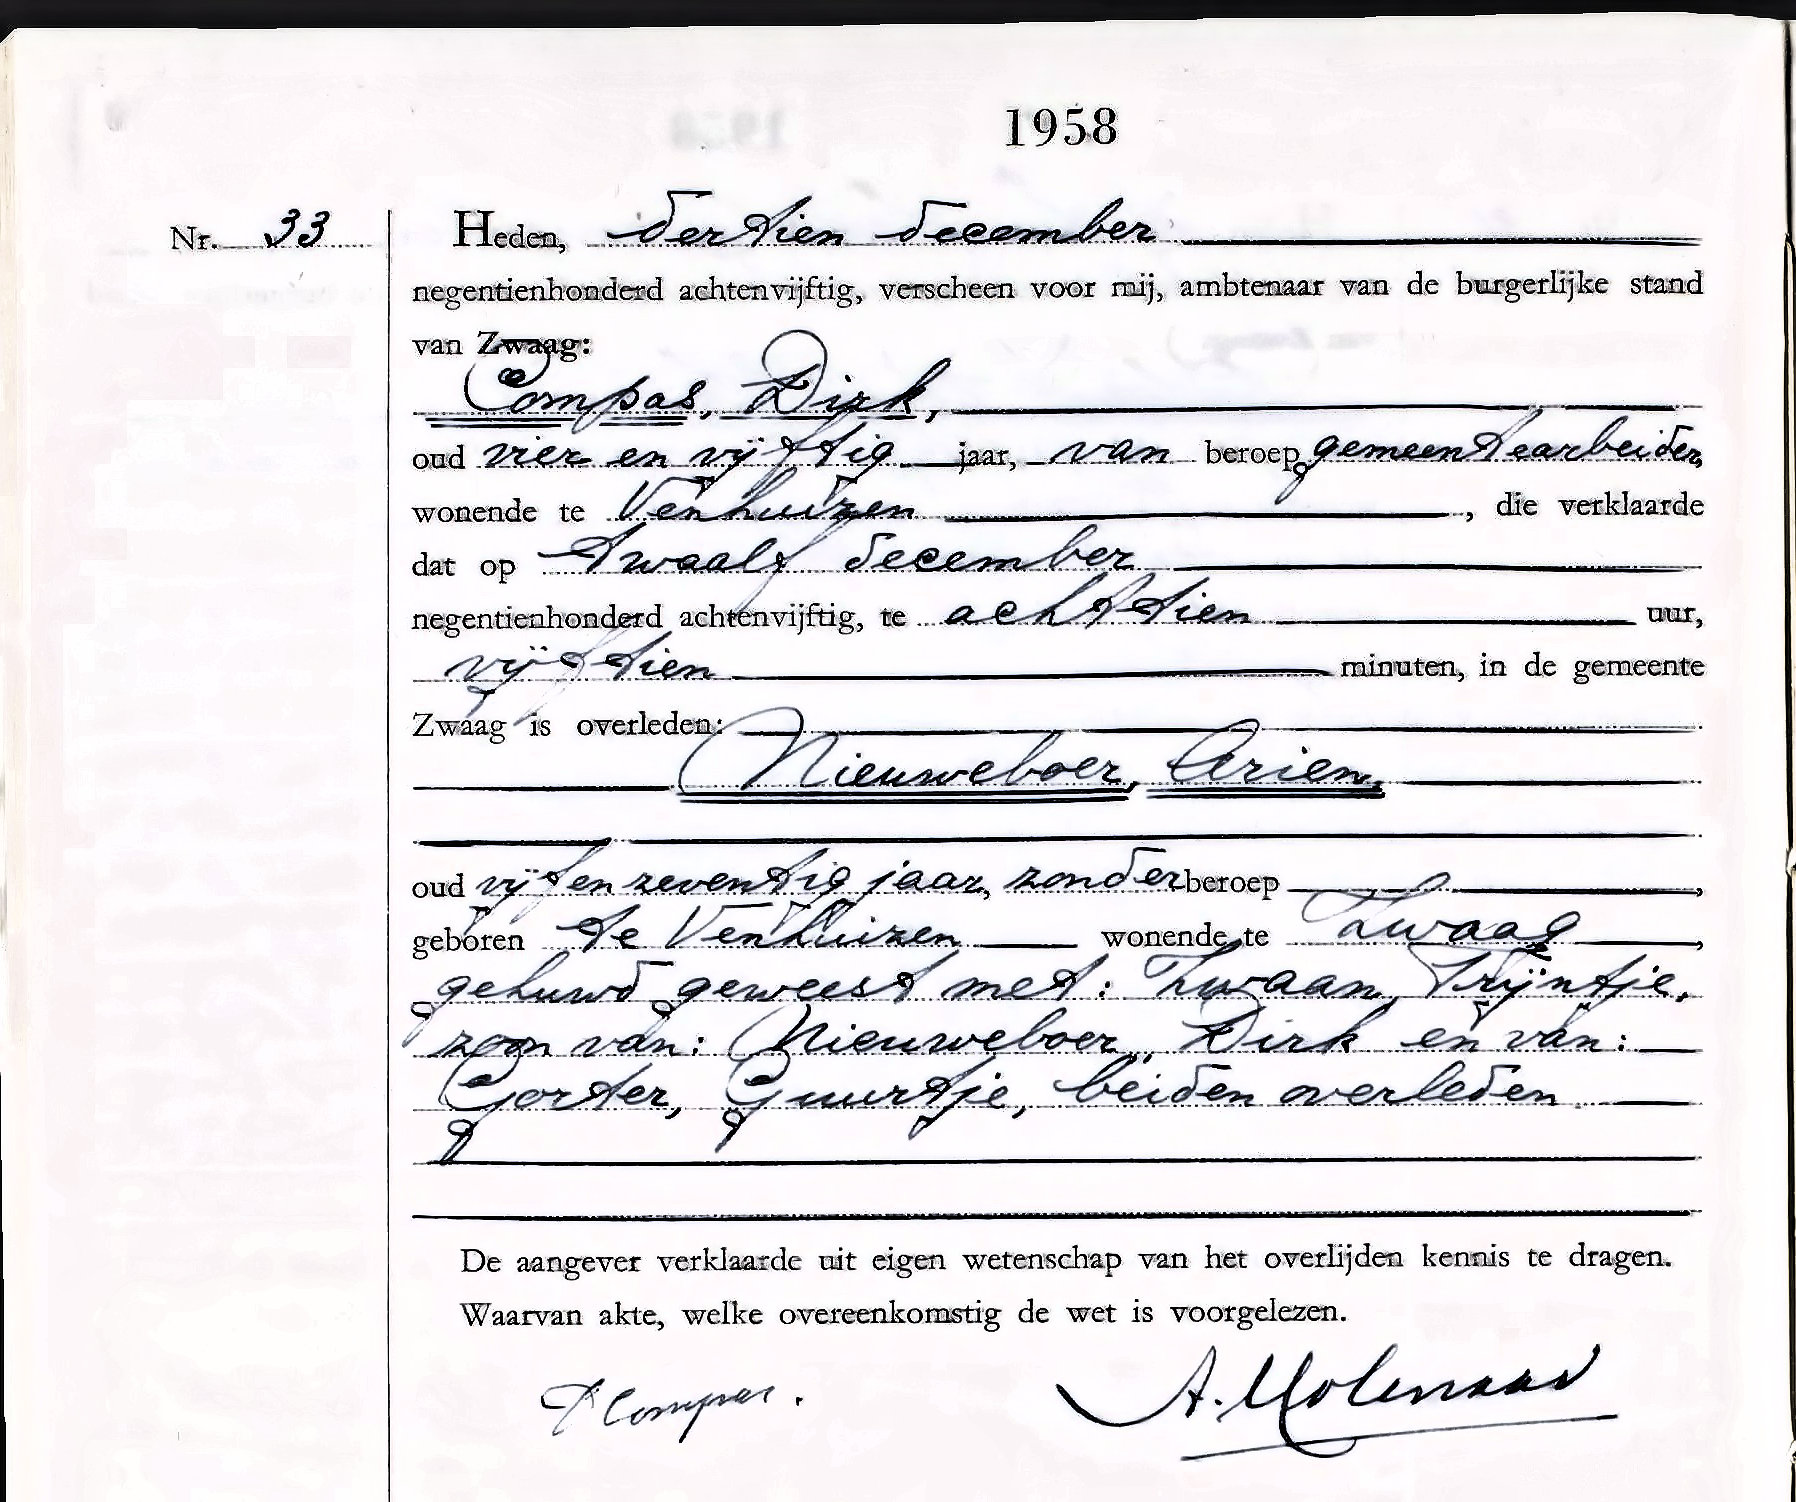 1958
Nr. 33
Heden, dertien december
negentienhonderd achtenvijftig, verscheen voor mij, ambtenaar van de burgerlijke stand
van Zwaag:
Compas, Dirk,
oud vier en vijftig jaar, van beroep gemeentearbeider,
wonende te Venhuizen, die verklaarde
dat op twaalf december
negentienhonderd achtenvijftig, te achttien uur,
vijftien minuten, in de gemeente
Zwaag is overleden:
Nieuweboer, Arien,
oud vijfenzeventig jaar, zonder beroep,
geboren te Venhuizen wonende te Zwaag,
gehuwd geweest met: Zwaan, Trijntje,
zoon van: Nieuweboer, Dirk en van:
Gorter, Guurtje, beiden overleden.
De aangever verklaarde uit eigen wetenschap van het overlijden kennis te dragen.
Waarvan akte, welke overeenkomstig de wet is voorgelezen.
D Compas. A. Molenaar